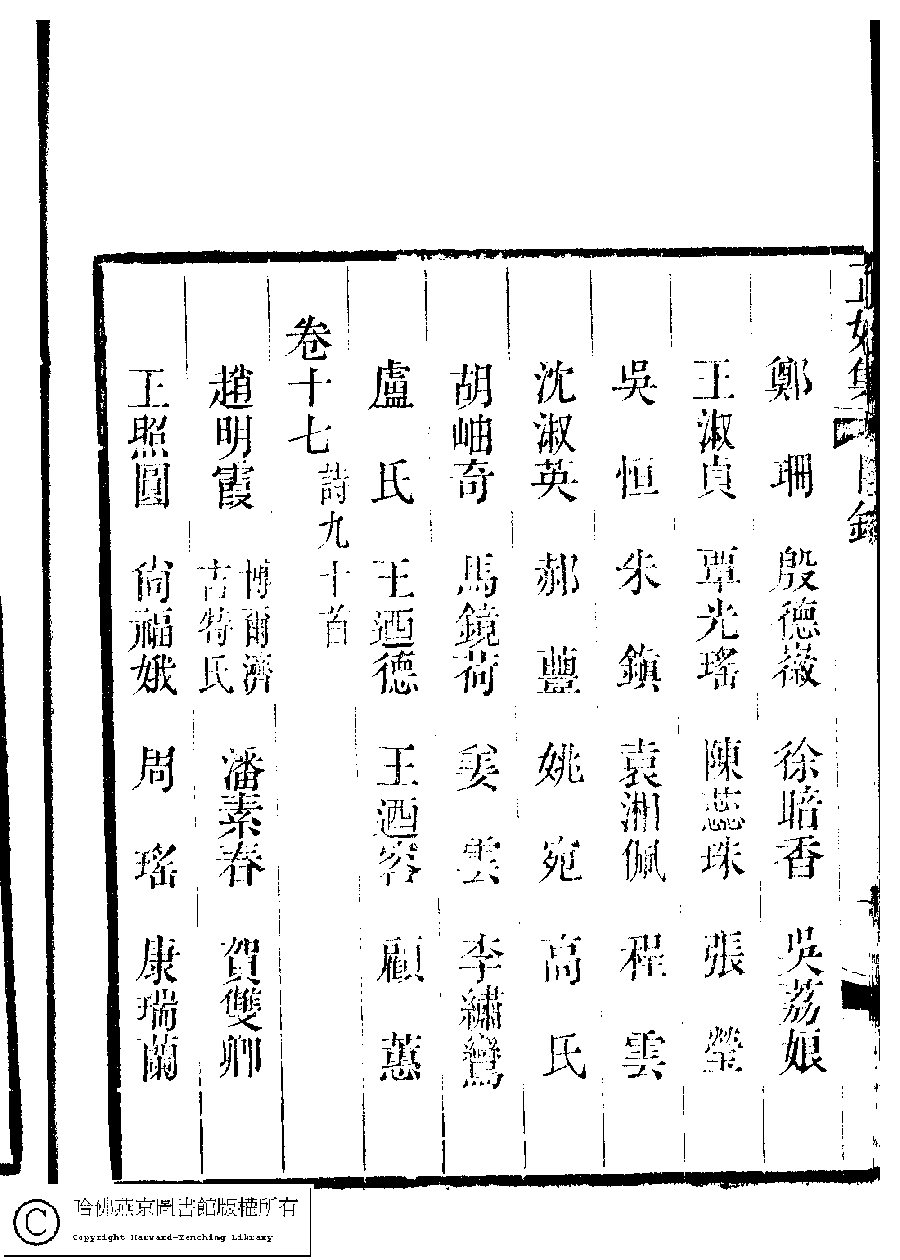 鄭珊 殷德徽 徐暗香 吳荔娘
王淑貞 覃光瑤 陳蕊珠 張瑩
吳恒 朱鎮 袁湘佩 程雲
沈淑英 郝豐 姚宛 高氏
胡岫奇 馬鏡荷 姜雲 李繡鸞
盧氏 王迺德 王迺容 顧蕙
卷十七 詩九十首
趙明霞 博爾濟古特氏 潘素春 賀雙卿
王照圓 尙福娥 周瑤 康瑞蘭
哈佛燕京圖書館版權所有
Copyright Harvard-Yenching Library